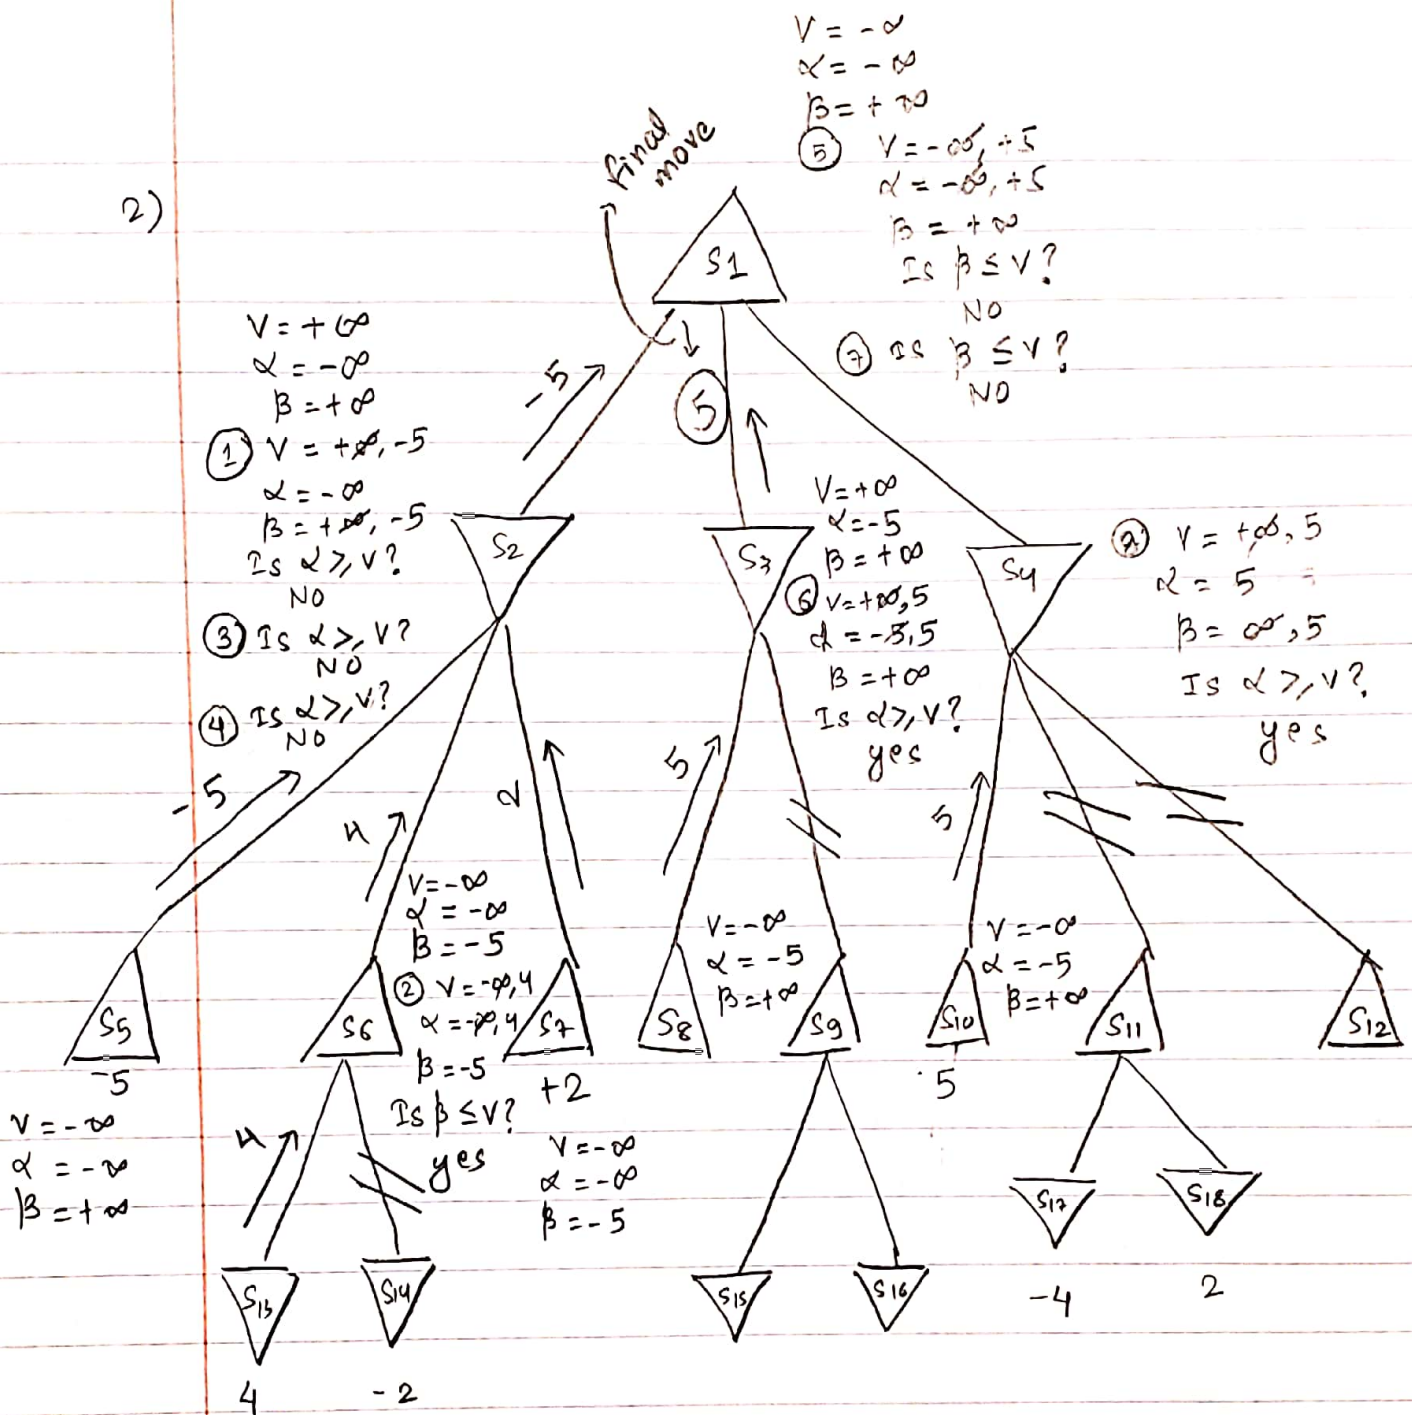 V = -∞
α = -∞
β = + ∞
⑤ V = -∞, +5
α = -∞, +5
β = + ∞
Is β ≤ V?
NO
⑦ IS β ≤ V?
NO
final
move
2)
S1
V = + ∞
α = -∞
β = +∞
① V = +∞, -5
α = -∞
β = +∞, -5
Is α ≥ V?
NO
③ Is α ≥ V?
NO
④ Is α ≥ V?
NO
-5
5
S2
S3
S4
V = +∞
α = -5
β = +∞
⑥ V = +∞, 5
α = -5, 5
β = +∞
Is α ≥ V?
yes
V = +∞, 5
α = 5
β = ∞, 5
Is α ≥ V?
yes
-5
4
2
5
5
V = -∞
α = -∞
β = -5
② V = -∞, 4
α = -∞, 4
β = -5
Is β ≤ V?
yes
V = -∞
α = -5
β = +∞
V = -∞
α = -5
β = +∞
S5
S6
S7
S8
S9
S10
S11
S12
-5
+2
5
V = -∞
α = -∞
β = +∞
4
V = -∞
α = -∞
β = -5
S13
S14
S15
S16
S17
S18
-4
2
4
-2